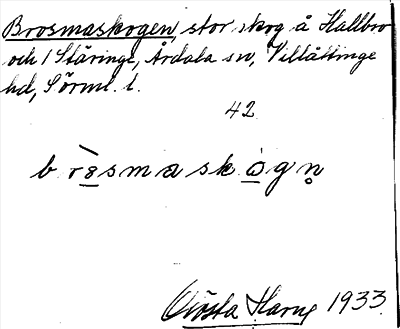 Brosmaskogen, stor skog å Hallbro
och / Stäringe, Årdala sn, Villåttinge
hd, Sörml. l.
42
Gösta Harng 1933.